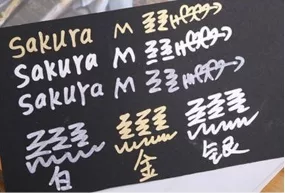 Sakura M
Sakura M
Sakura M
白 金 银